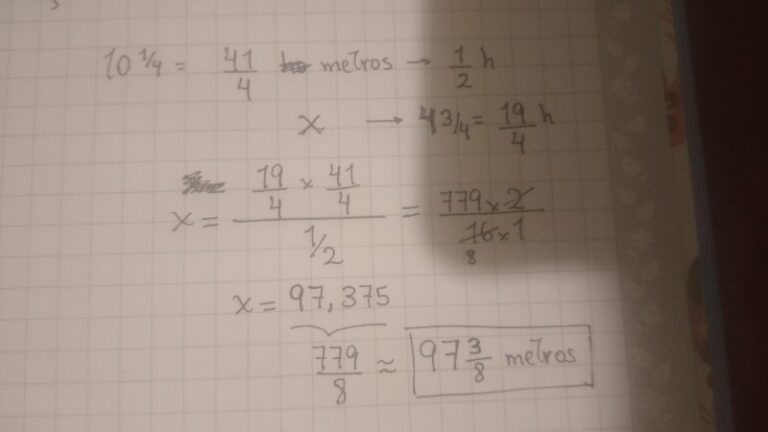 10 1/4 = 41/4 metros → 1/2 h
x → 4 3/4 = 19/4 h
x = (19/4 x 41/4) / (1/2) = (779 x 2) / (16 x 1)
8
x = 97,375
779/8 ≈ 97 3/8 metros